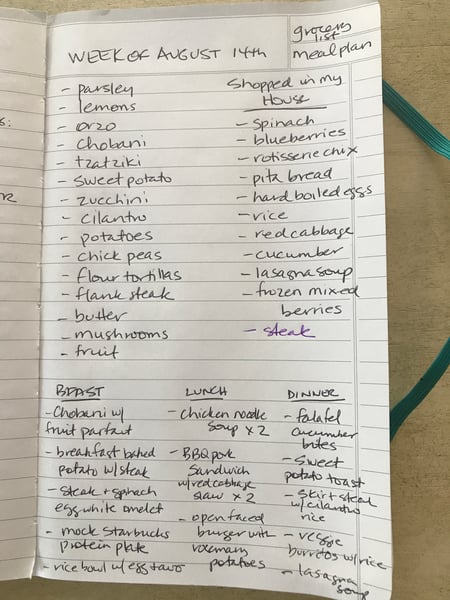 grocery
list
WEEK OF AUGUST 14th
meal plan
- parsley
- lemons
- orzo
- chobani
- tzatziki
- sweet potato
- zucchini
- cilantro
- potatoes
- chick peas
- flour tortillas
- flank steak
- butter
- mushrooms
- fruit
Shopped in my
House
- spinach
- blueberries
- rotisserie chix
- pita bread
- hard boiled eggs
- rice
- red cabbage
- cucumber
- lasagna soup
- frozen mixed
berries
- steak
BFAST
- Chobani w/
fruit parfait
- breakfast baked
potato w/ steak
- steak + spinach
egg white omelet
- mock Starbucks
protein plate
- rice bowl w/ egg + avo
LUNCH
- chicken noodle
soup x 2
- BBQ pork
Sandwich
w/ red cabbage
slaw x 2
- open faced
burger with
rosemary
potatoes
DINNER
- falafel
cucumber
bites
- sweet
potato toast
- skirt steak
w/ cilantro
rice
- veggie
burritos w/ rice
- lasagna
soup